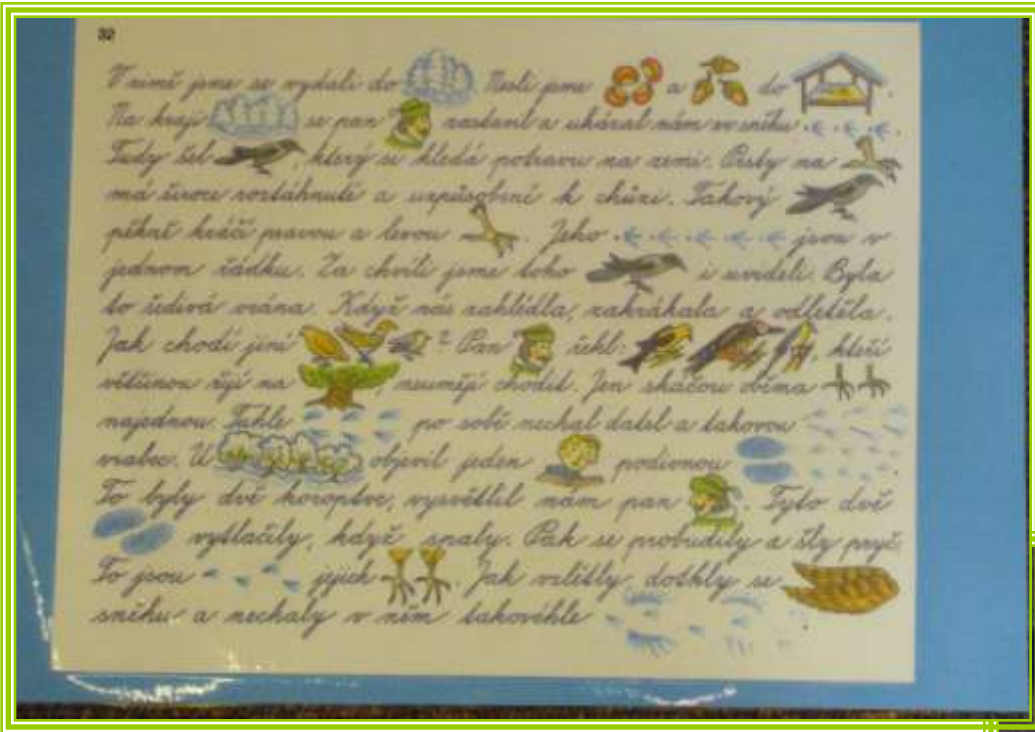 32
V zimě jsme se vydali do . Nesli jsme a do .
Na kraji se pan zastavil a ukázal nám ve sněhu .
Tudy šel , který si hledá potravu na zemi. Prsty na
má široce roztáhnuté a uzpůsobené k chůzi. Takový
pěkně kráčí pravou a levou . Jeho jsou v
jednom řádku. Za chvíli jsme toho i uviděli. Byla
to šedivá vrána. Když nás zahlédla, zakrákala a odletěla.
Jak chodí jiní ? Pan řekl: , kteří
většinou žijí na , neumějí chodit. Jen skáčou oběma
najednou. Tahle po sobě nechal datel a takovou
vrabec. U objevil jeden podivnou
To byly dvě koroptve, vysvětlil nám pan . Tyto dvě
vytlačily, když spaly. Pak se probudily a šly pryč.
To jsou jejich . Jak vzlétly, dotkly se
sněhu a nechaly v něm takovéhle